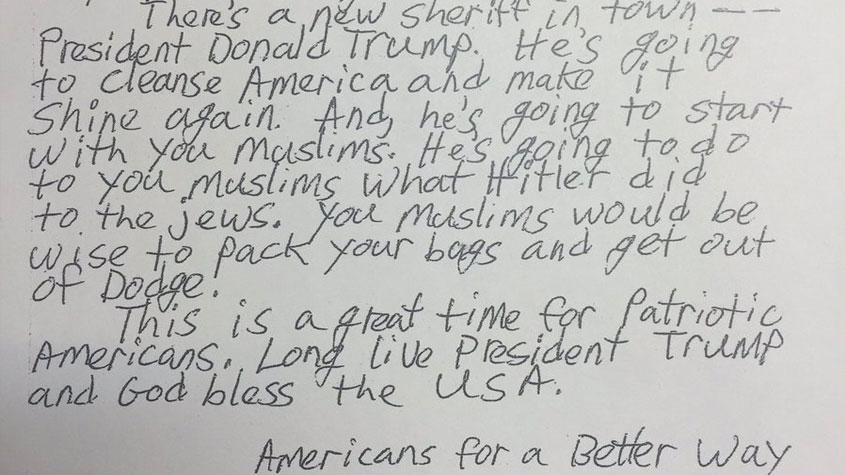 There's a new sheriff in town --
President Donald Trump. He's going
to cleanse America and make it
shine again. And, he's going to start
with you muslims. He's going to do
to you muslims what Hitler did
to the jews. You muslims would be
wise to pack your bags and get out
of Dodge.
This is a great time for Patriotic
Americans. Long live President Trump
and God bless the USA.
Americans for a Better Way